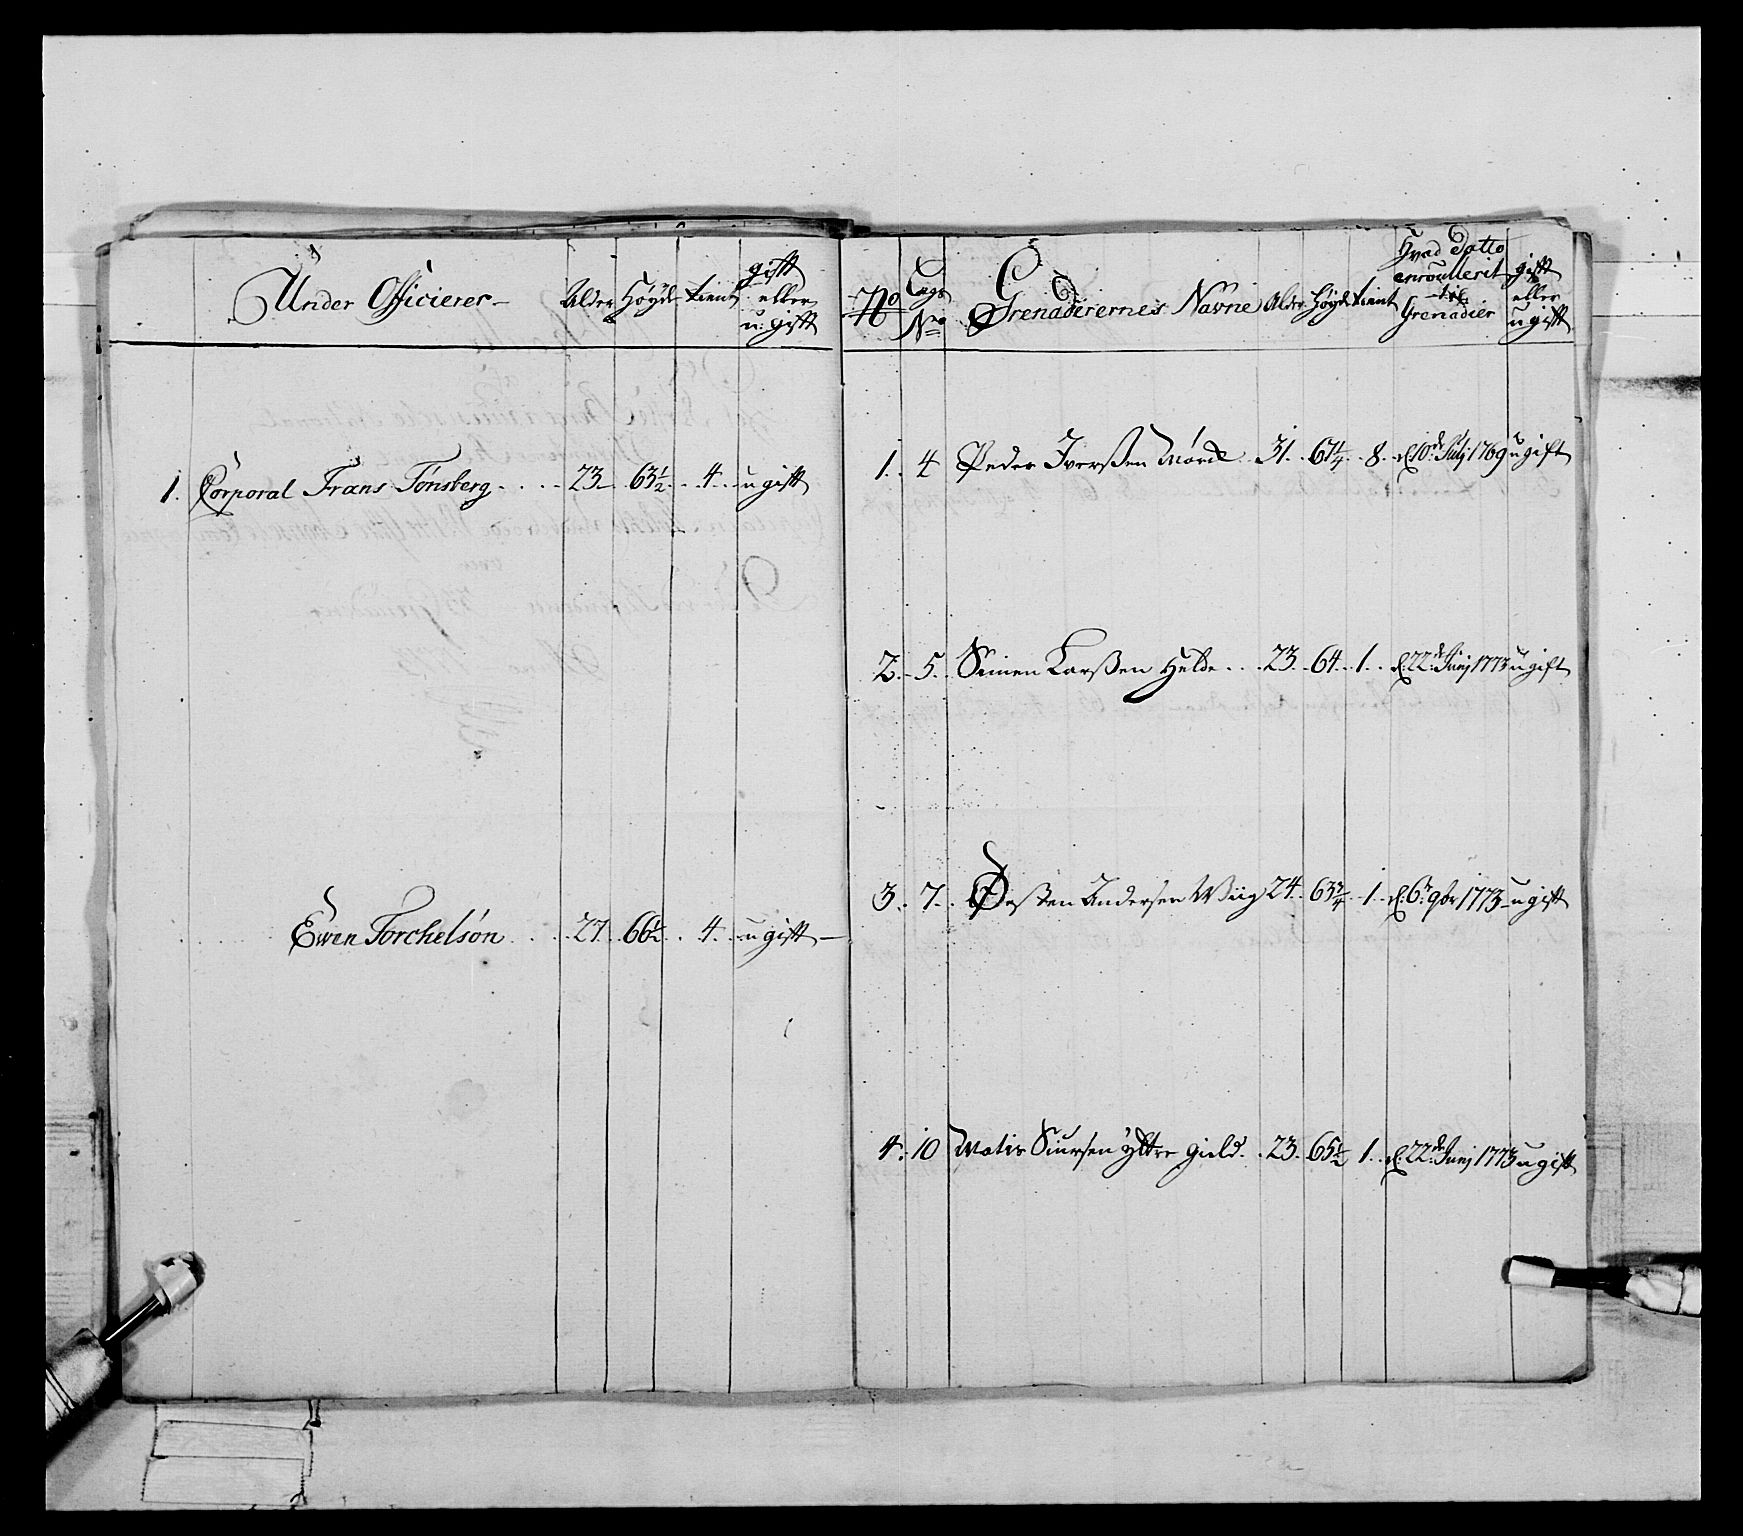 Under Officierer Alder Høyde tient gift eller ugift
1. Corporal Frans Tönsberg 23 63½ 4 ugift
Ewen Torchelsón 27 66½ 4 ugift
No Lægs No Grenaderernes Navne Alder Høyde tient Hvad Datto enroullerit til Grenadier gift eller ugift
1. 4 Peder Iverßen 31 67¼ 8 d. 10de Julj 1769 ugift
2. 5. Simen Larßen Helde 23 64 1 d. 22de Junj 1773 ugift
3. 7. Østen Andersen Wiig 24 63¾ 1 d. 6t 9br 1773 ugift
4. 10 Matis Siursen Yttre 23 65½ 1 d. 22de Junj 1773 ugift